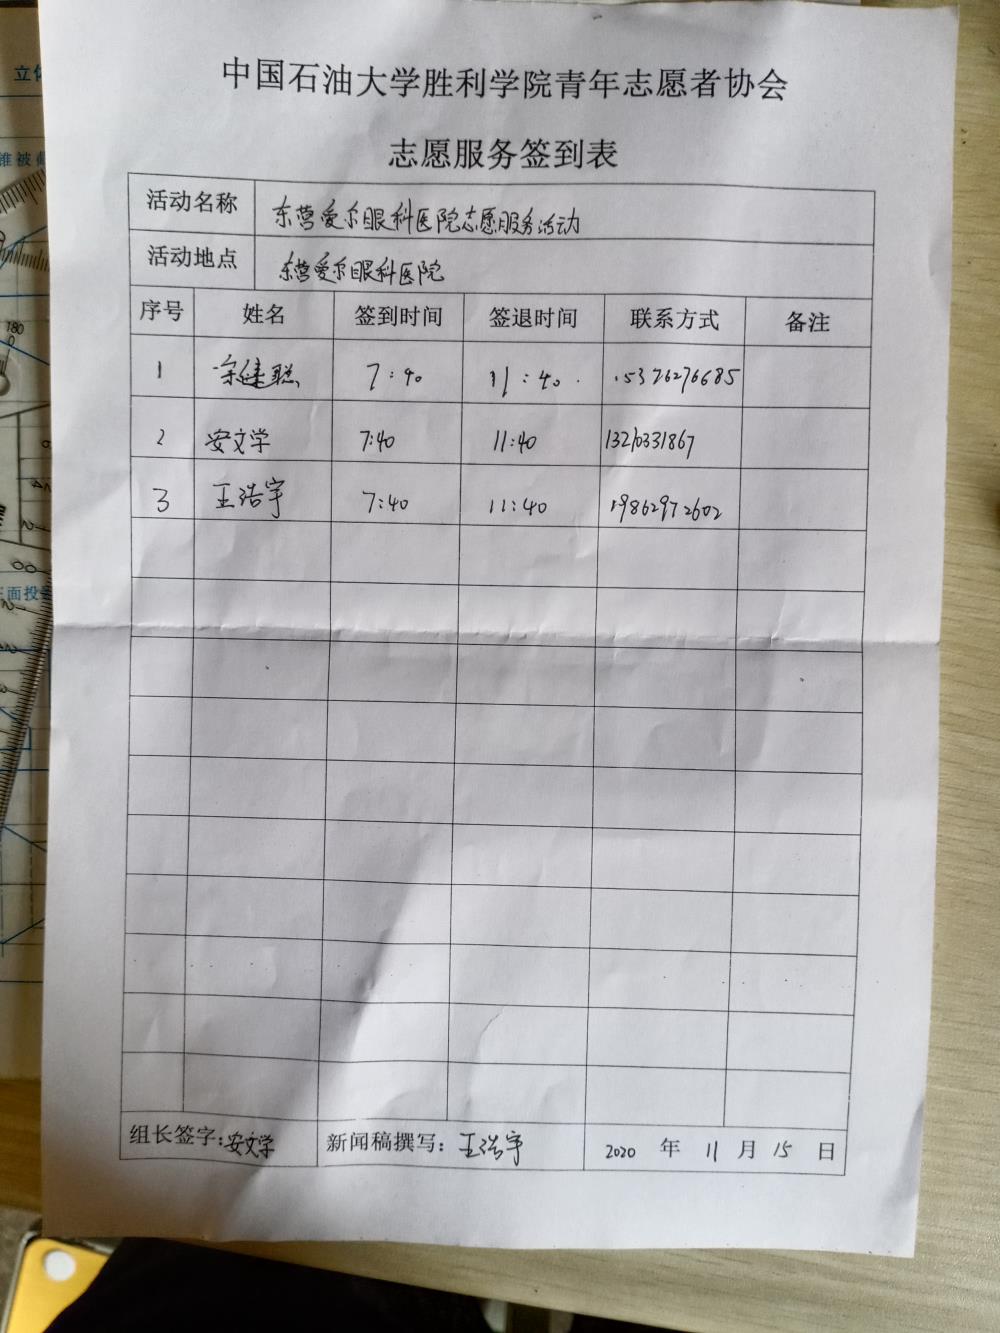 中国石油大学胜利学院青年志愿者协会
志愿服务签到表
活动名称 东营爱尔眼科医院志愿服务活动
活动地点 东营爱尔眼科医院
序号 姓名 签到时间 签退时间 联系方式 备注
1 宋健聪 7:40 11:40 15376276685
2 安文学 7:40 11:40 13210331867
3 王浩宇 7:40 11:40 19862972602
组长签字:安文学 新闻稿撰写:王浩宇 2020 年 11 月 15 日
立体
180
0